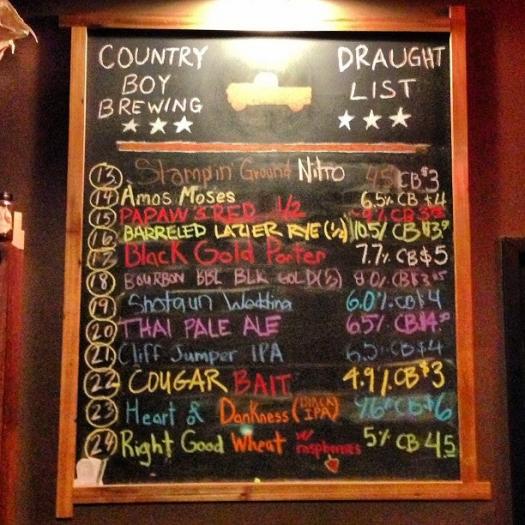 COUNTRY BOY BREWING
DRAUGHT LIST
13 Stampin' Ground Nitro 4.5 CB $3
14 Amos Moses 6.5% CB $4
15 PAPAW'S RED 1/2 9% CB
16 BARRELED LAZIER RYE (½) 10.5% CB
17 Black Gold Porter 7.7% CB $5
18 BOURBON BBL BLK GOLD (½) 8.0% CB
19 Shotgun Wedding 6.0% CB $4
20 THAI PALE ALE 6.5% CB
21 Cliff Jumper IPA 6.5% CB $4
22 COUGAR BAIT 4.9% CB $3
23 Heart of Dankness (BLACK IPA) 9.6% CB $6
24 Right Good Wheat w/ raspberries 5% CB 4.5